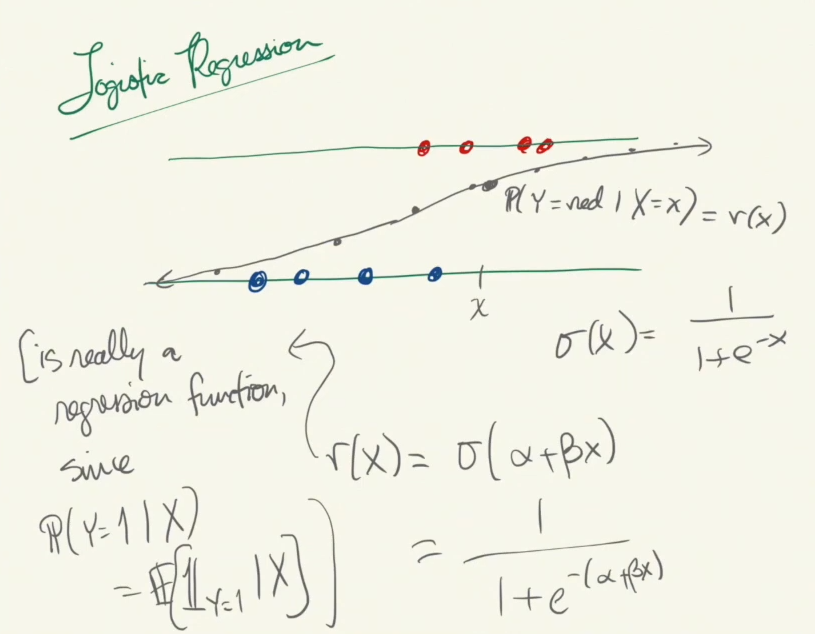 Logistic Regression
P(Y=red | X=x) = r(x)
x
σ(x) = 1/(1+e^{-x})
[is really a
regression function,
since
P(Y=1 | X)
= E[𝟙_{Y=1} | X]]
r(x) = σ(α+βx)
= 1/(1+e^{-(α+βx)})